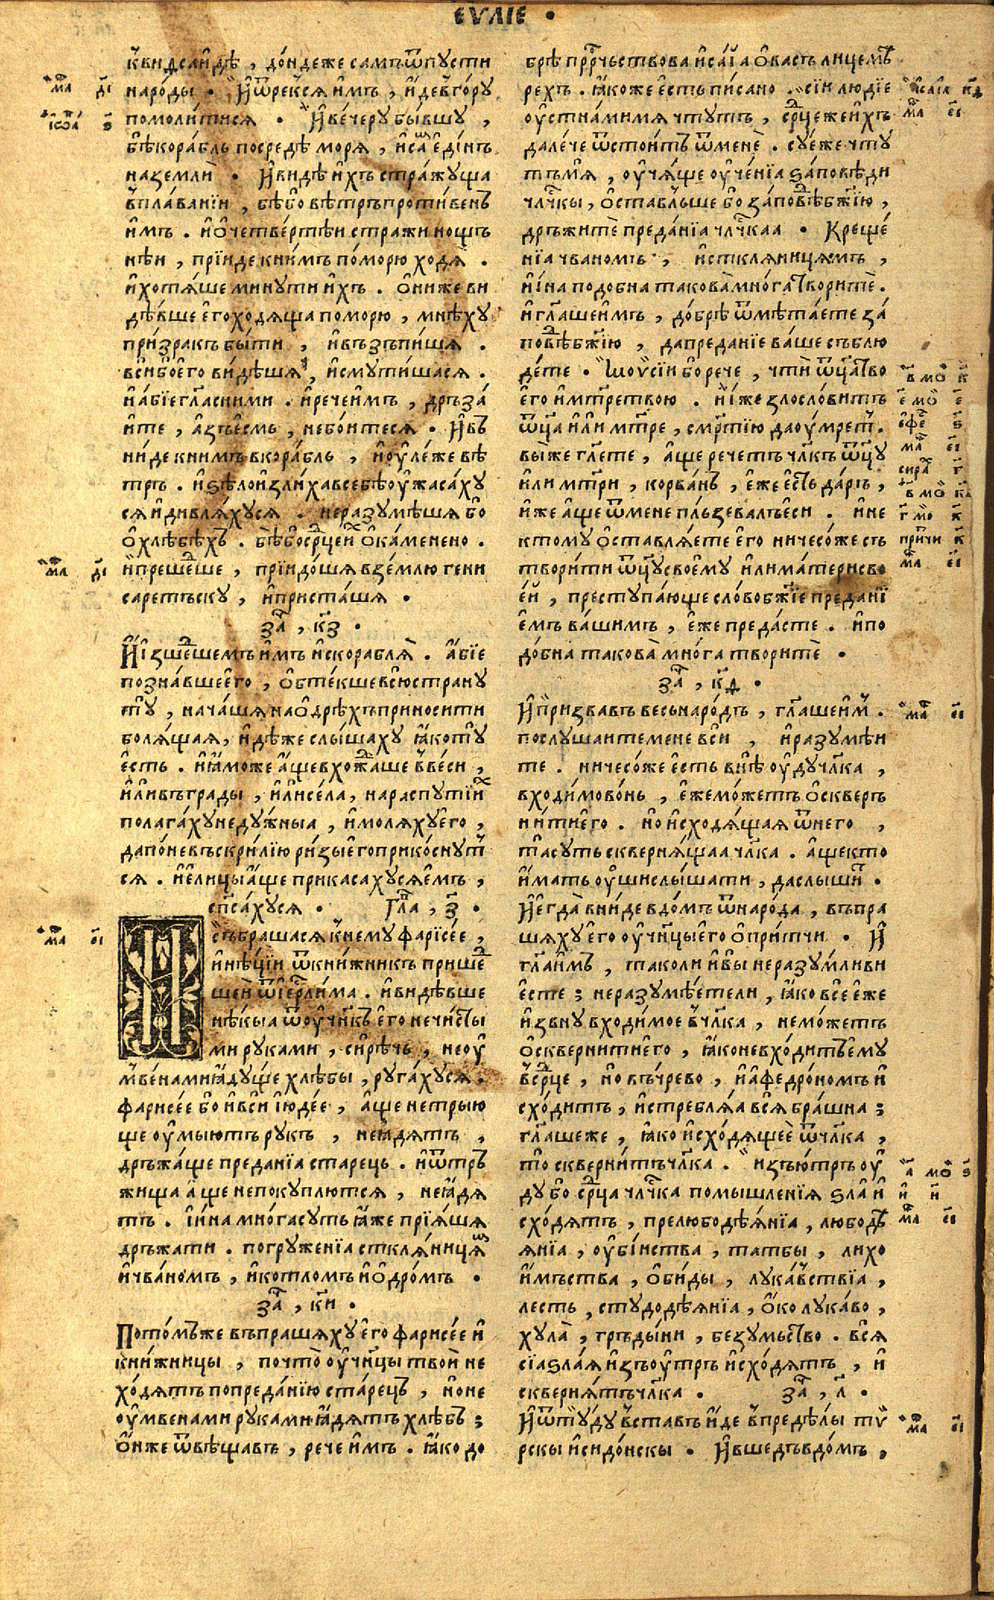 ЕѴЛІЕ •
к̾видсаидѣ , дондеже самъ ѿпусти
народы • И ѿрекся имъ , иде в̾гору
помолитися • И вечеру бывшу ,
бѣ корабль посредѣ моря , и самъ единъ
на земли • И видѣ ихъ стражуща
в̾плаваніи , бѣ бо вѣтръ противенъ
имъ . и о четвертѣи стражи нощъ
нѣи , пріиде к нимъ по морю ходя .
и хотяше минути ихъ . они же ви
дѣвше его ходяща по морю , мнѣху
призракъ быти , и възъпишя .
вси бо его видѣшя , и смутишася .
и абіе гл҃а с ними . и рече имъ , дръза
ите , азъ есмь , не боитеся • И въ
ниде к нимъ в корабль , и оулеже вѣ
тръ . и ѕѣло излиха в себѣ оужасаху
ся и дивляхуся . не разумѣшя бо
о хлѣбѣхъ . бѣ бо ср҃це ихъ окаменено .
и прешедше , пріидошя в землю гени
саретъску , и присташя •
за҃ , к҃з •
И изшедшемъ имъ ис корабля . абіе
познавше его , обтекше всю страну
ту , начашя на одрѣхъ приносити
болящая , идѣже слышаху яко ту
есть . и яможе аще вхождаше в̾ веси ,
или въ грады , или села , на распутіих
полагаху недужныа , и моляху его ,
да поне въскрилію ризы его прикоснут
ся . и елицы аще прикасахуся емъ ,
сп҃сахуся • Гла҃ , з҃ •
Събрашася к̾нему фарісѣе ,
и нѣціи ѿ книжникъ прише
шеи ѿ іер҃лима . и видѣвше
нѣкыа ѿ оучн҃къ его нечисты
ми руками , сирѣчь , не оу
мвенами ядуще хлѣбы , ругахуся .
фарисѣе бо и вси іюдѣе , аще не трыю
ще оумыютъ рукъ , не ядятъ ,
дръжаще преданіа старець . и ѿ тръ
жища аще не покуплются , не ядя
тъ . и ина многа суть яже пріяшя
дръжати . погруженіа сткляницям
и чваномъ , и котломъ и одромъ •
за҃ , к҃и •
Потом̾же въпрашяху его фарисѣе и
книжницы , почто оучн҃цы твои не
ходятъ по преданію старецъ , но не
оумвенами руками ядятъ хлѣбъ ;
Он же ѿвѣщавъ , рече имъ . яко до
брѣ пр҃рчьствова исаіа о васъ лицемѣ
рехъ . якоже есть писано . сіи людіе
оустнами мя чтутъ , ср҃це же ихъ
далече ѿстоитъ ѿ мене . суе же чту
тъ мя , оучяще оученіа заповѣди
члч҃кы , оставльше бо заповѣд бж҃ію ,
дръжите преданіа члч҃каа • Креще
ніа чваномъ , и сткляницямъ ,
и ина подобна такова многа творите .
и гл҃аше имъ , добрѣ ѿмѣтаете за
повѣд бж҃ію , да преданіе ваше съблю
дете • Мѡѵсіи бо рече , чти ѿц҃а тво
его и м҃трь твою . и иже злословитъ
ѿц҃а или м҃тре , см҃ртію да оумрет .
вы же гл҃ете , аще речетъ чл҃къ ѿц҃у
или м҃три , корванъ , еже есть даръ ,
иже аще ѿ мене пльзевалъ еси . и не
ктому оставляете его ничесоже съ
творити ѿц҃у своему или матери сво
еи , преступающе слово бж҃іе предані
емъ вашимъ , еже предасте . и по
добна такова многа творите •
за҃ , к҃ѳ •
И призвавъ весь народъ , гл҃аше им .
послушаите мене вси , и разумѣи
те . ничесоже есть внѣ оуду чл҃ка ,
входимо вонь , еже можетъ оскверъ
нити его . но исходящая ѿ него ,
та суть сквернящаа чл҃ка . аще кто
имать оуши слышати , да слышит •
И егда вниде в домъ ѿ народа , въпра
шяху его оучн҃цы его о притчи • И
гл҃а имъ , тако ли и вы неразумливи
есте ; не разумѣете ли , яко все еже
извну входимое в̾ чл҃ка , не можетъ
осквернити его , яко не входитъ ему
в̾ ср҃це , но въ чрево , и афедрономъ и
сходитъ , истребляа вся брашна ;
гл҃аше же , яко исходящее ѿ чл҃ка ,
то сквернитъ чл҃ка . изъютръ оу
ду бо ср҃ца члч҃ка помышленія ѕла и
сходятъ , прелюбодѣянія , любодѣ
янія , оубіиства , татбы , лихо
имъства , обиды , лукавствіа ,
лесть , студодѣянія , око лукаво ,
хула , гръдыни , безумьство . вся
сіа ѕлаа изъоутръ исходятъ , и
сквернятъ чл҃ка • за҃ , л҃ •
И ѿтуду въставъ иде в̾ предѣлы ту
рскы и сидонскы • И вшедъ в домъ ,